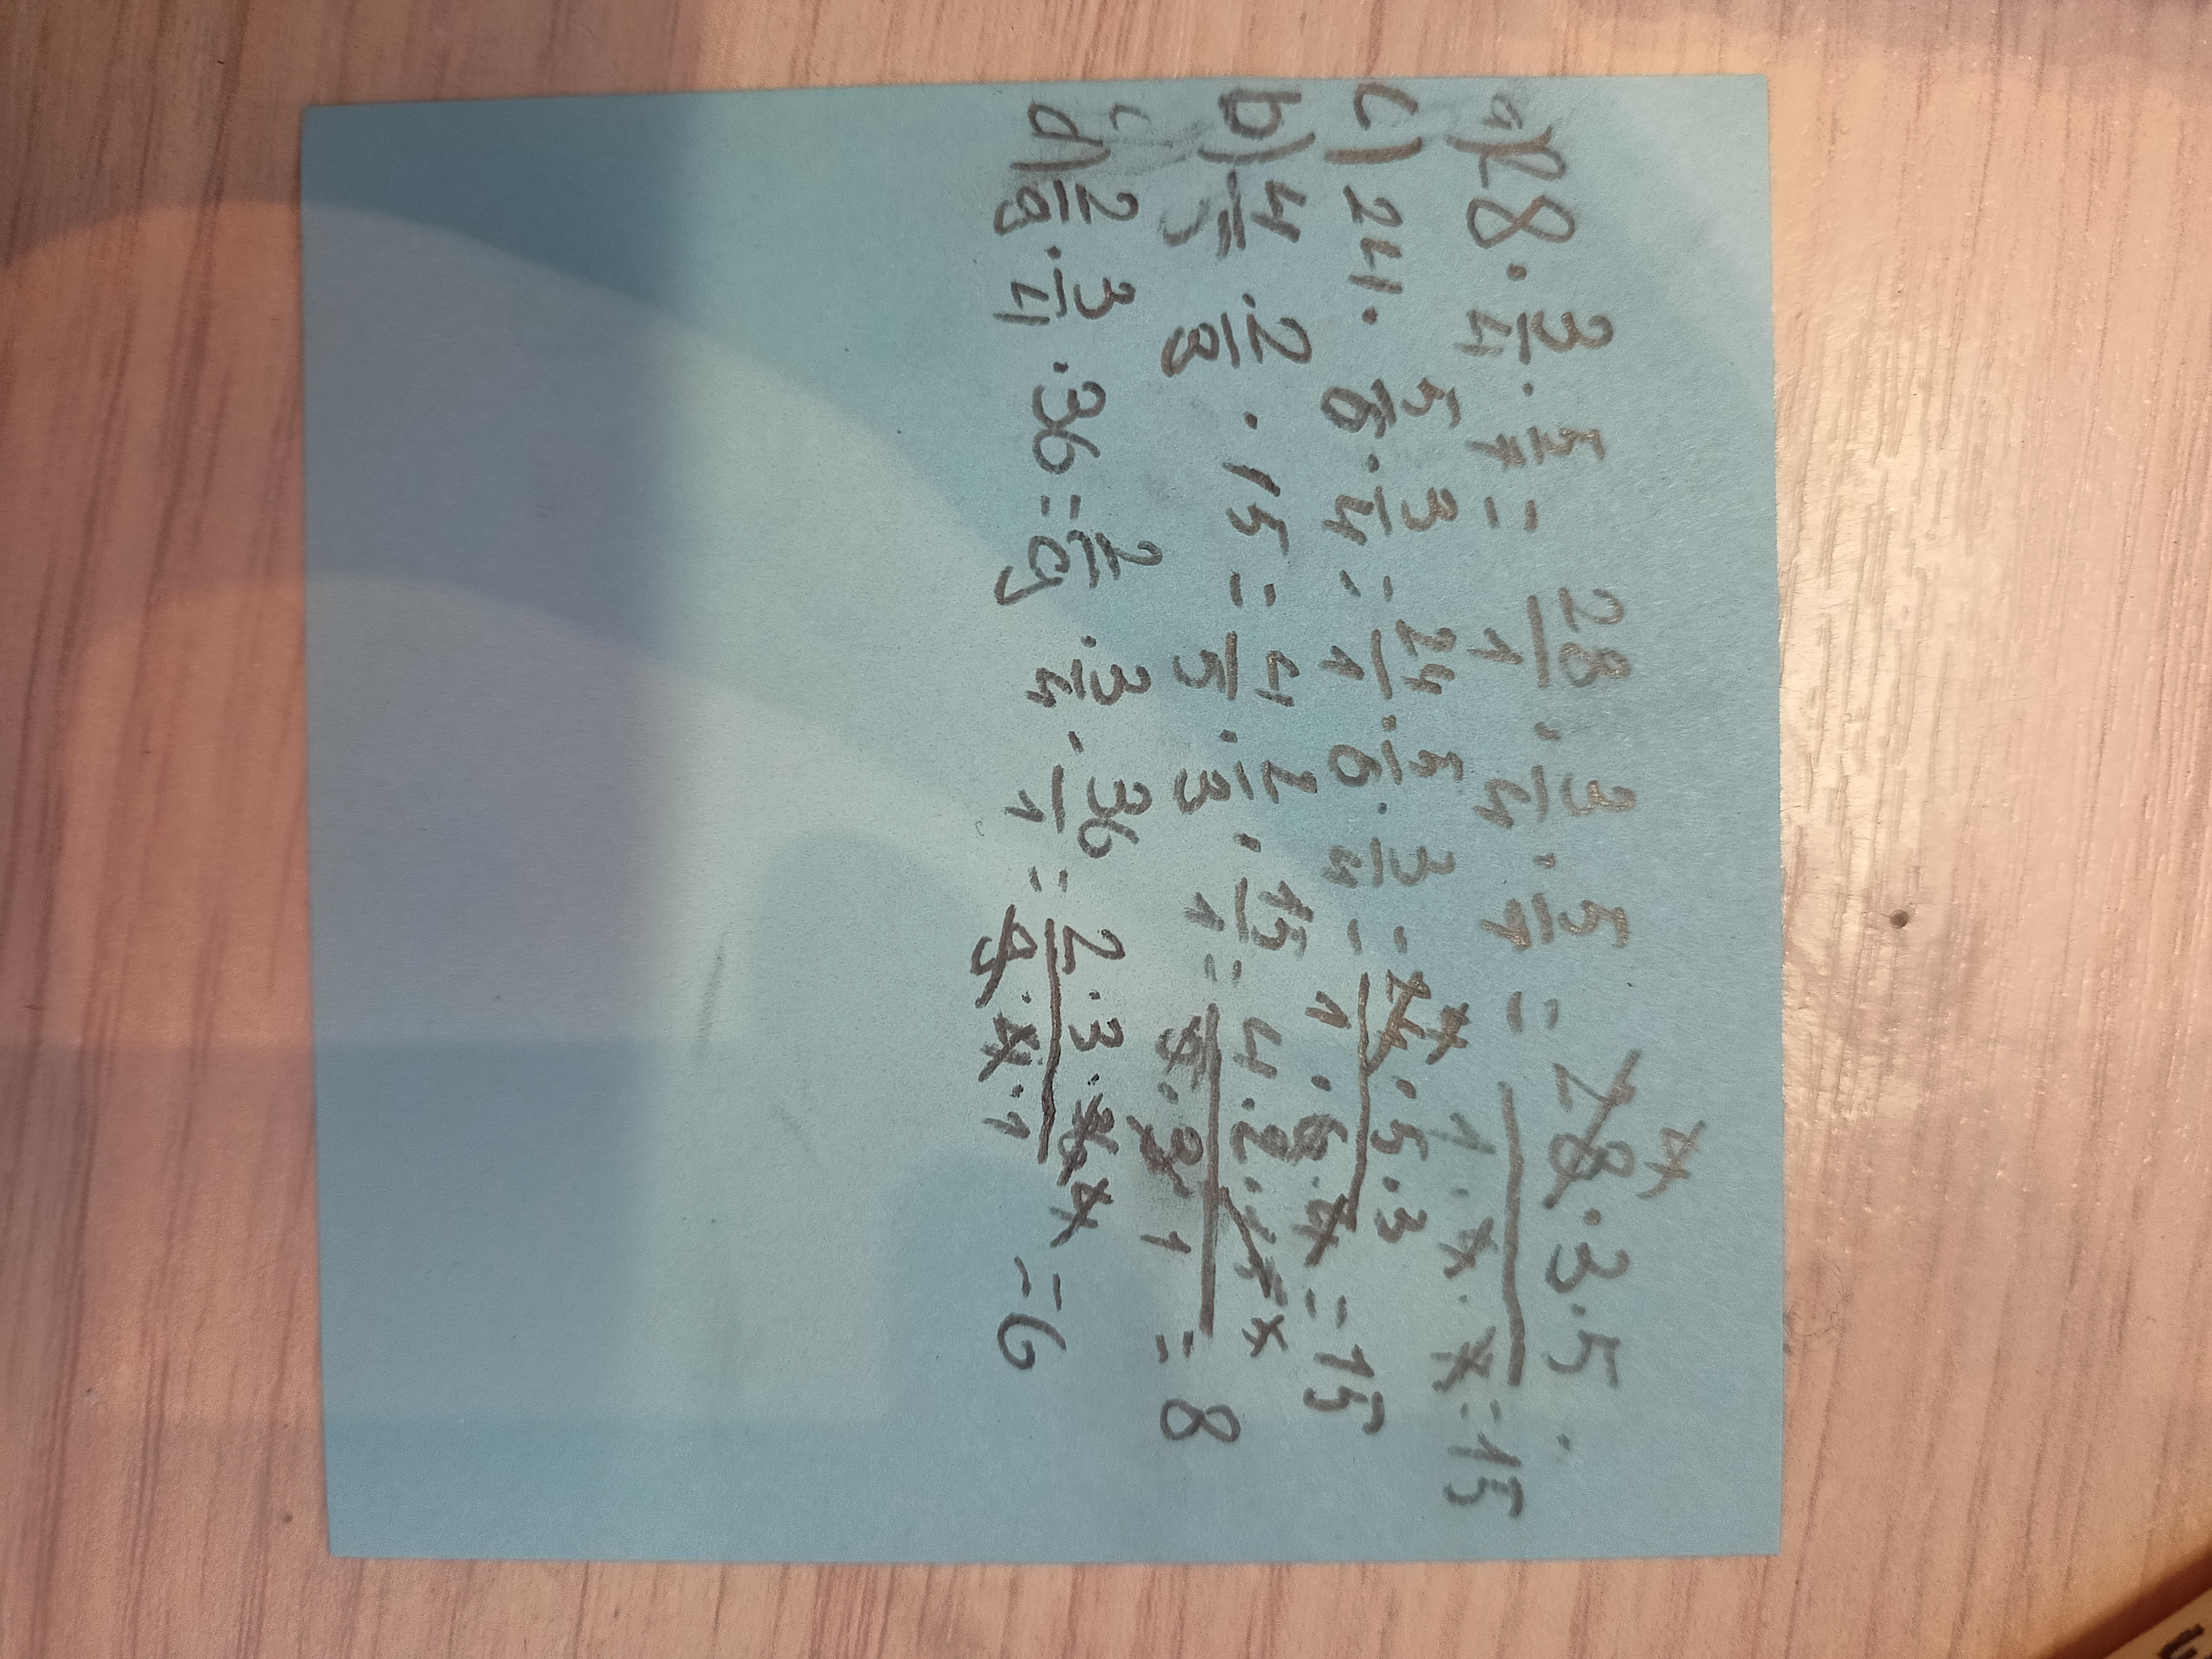 a) 28 · 3/4 · 5/7 = 28/1 · 3/4 · 5/7 = 28 7 · 3 · 5 / 1 · 4 · 7 = 15
c) 24 · 5/6 · 3/4 = 24/1 · 5/6 · 3/4 = 24 4 · 5 · 3 / 1 · 6 · 4 = 15
b) 4/5 · 2/3 · 15 = 4/5 · 2/3 · 15/1 = 4 · 2 · 15 / 5 · 3 · 1 = 8
d) 2/9 · 3/4 · 36 = 2/9 · 3/4 · 36/1 = 2 · 3 · 36 4 / 9 · 4 · 1 = 6